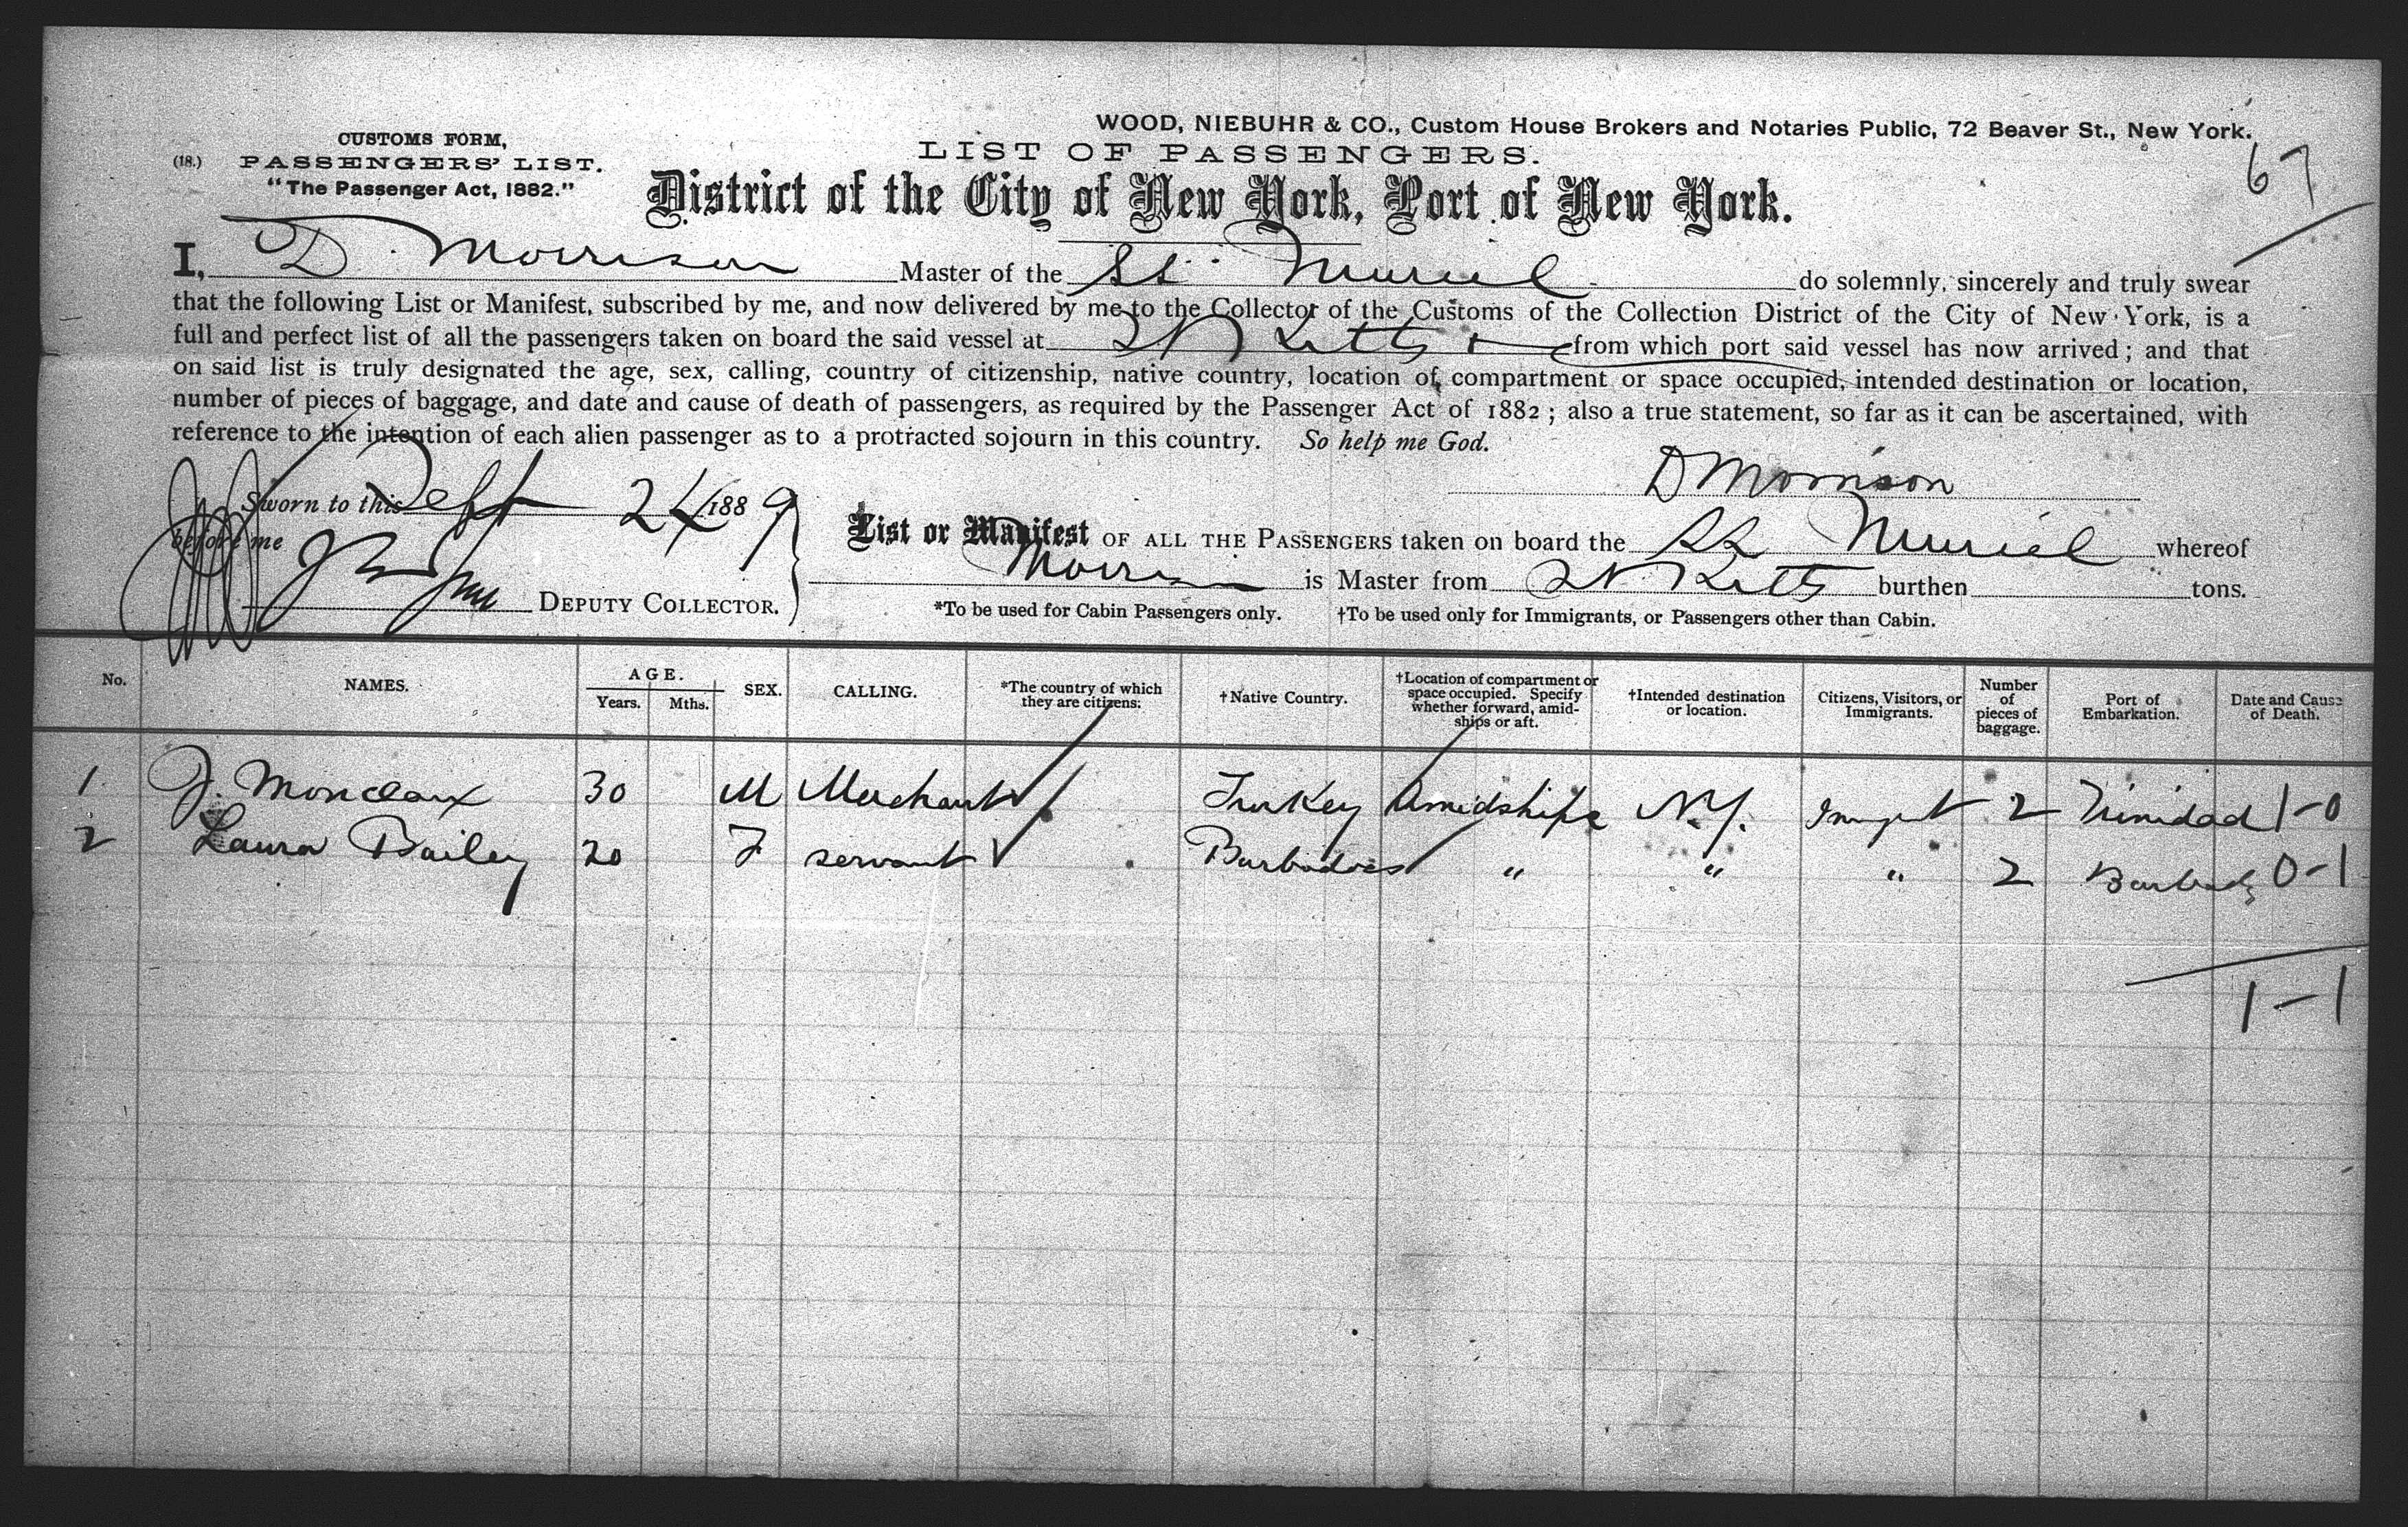 WOOD, NIEBUHR & CO., Custom House Brokers and Notaries Public, 72 Beaver St., New York.
CUSTOMS FORM,
(18.) PASSENGERS' LIST.
"The Passenger Act, 1882."
LIST OF PASSENGERS.
67
District of the City of New York, Port of New York.
I, D. Morrison Master of the SS. Muriel do solemnly, sincerely and truly swear
that the following List or Manifest, subscribed by me, and now delivered by me to the Collector of the Customs of the Collection District of the City of New York, is a
full and perfect list of all the passengers taken on board the said vessel at St Kitts from which port said vessel has now arrived; and that
on said list is truly designated the age, sex, calling, country of citizenship, native country, location of compartment or space occupied, intended destination or location,
number of pieces of baggage, and date and cause of death of passengers, as required by the Passenger Act of 1882; also a true statement, so far as it can be ascertained, with
reference to the intention of each alien passenger as to a protracted sojourn in this country. So help me God.
D Morrison
Sworn to this Sept 24 1889
before me
DEPUTY COLLECTOR.
List or Manifest OF ALL THE PASSENGERS taken on board the SS Muriel whereof
Morrison is Master from St Kitts burthen tons.
*To be used for Cabin Passengers only. †To be used only for Immigrants, or Passengers other than Cabin.
No. NAMES. AGE. Years. Mths. SEX. CALLING. *The country of which they are citizens. †Native Country. †Location of compartment or space occupied. Specify whether forward, amidships or aft. †Intended destination or location. Citizens, Visitors, or Immigrants. Number of pieces of baggage. Port of Embarkation. Date and Cause of Death.
1. J. Monclaux 30 M Merchant Turkey Amidships N.Y. Immgrt 2 Trinidad 1-0
2 Laura Bailey 20 F servant Barbadoes " " " 2 Barbads 0-1
1-1